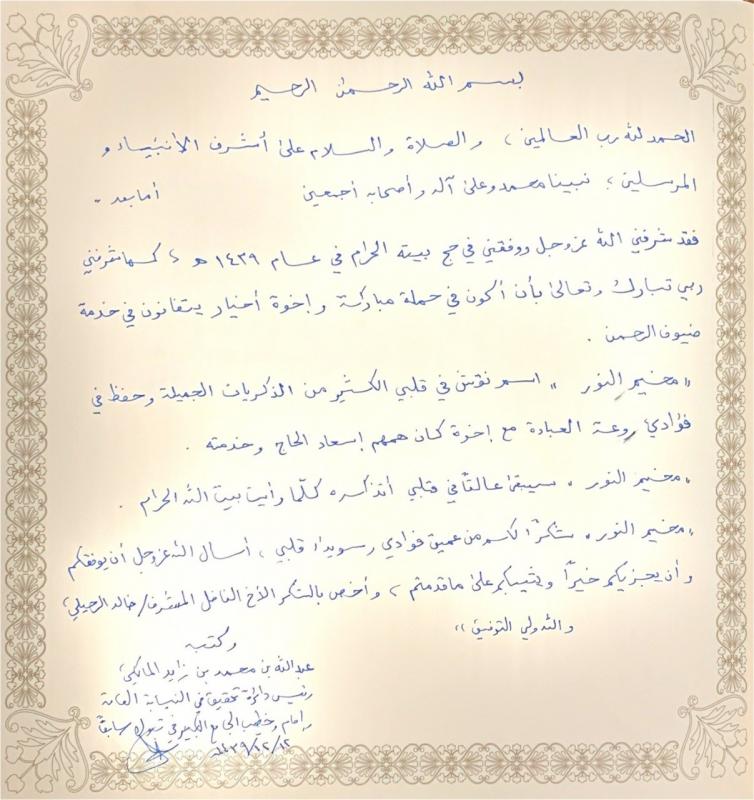 بسم الله الرحمن الرحيم
الحمد لله رب العالمين ، والصلاة والسلام على أشرف الأنبياء و
المرسلين ؛ نبينا محمد وعلى آله وأصحابه أجمعين أما بعد .
فقد شرفني الله عز وجل ووفقني في حج بيته الحرام في عام ١٤٣٩ هـ ، كما شرفني
ربي تبارك وتعالى بأن أكون في حملة مباركة وإخوة أخيار يتفانون في خدمة
ضيوف الرحمن .
" مخيم النور " اسم نقش في قلبي الكثير من الذكريات الجميلة وحفظ في
فؤادي روعة العبادة مع إخوة كان همهم إسعاد الحاج وخدمته .
" مخيم النور " سيبقى عالقاً في قلبي أتذكره كلّما رأيت بيت الله الحرام .
" مخيم النور " شكراً لكم من عميق فؤادي وسويداء قلبي ، أسال الله عز وجل أن يوفقكم
وأن يجزيكم خيراً ويثيبكم على ما قدمتم ، وأخص بالشكر الأخ الفاضل المشرف / خالد الرحيلي ،
والله ولي التوفيق ،،
وكتبه
عبدالله بن محمد بن زايد المالكي
رئيس دائرة تحقيق في النيابة العامة
وإمام وخطيب الجامع الكبير في تبوك سابقاً
١٤٣٩/١٢/١٢هـ